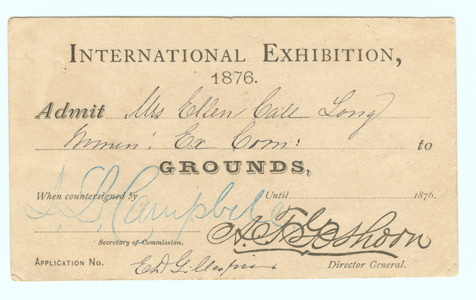 INTERNATIONAL EXHIBITION,
1876.
Admit Mrs Ellen Call Long
Women's Ex Com: to
GROUNDS,
When countersigned by Until 1876.
J. L. Campbell
Secretary of Commission. A. T. Goshorn
APPLICATION No. E D Gillespie Director General.